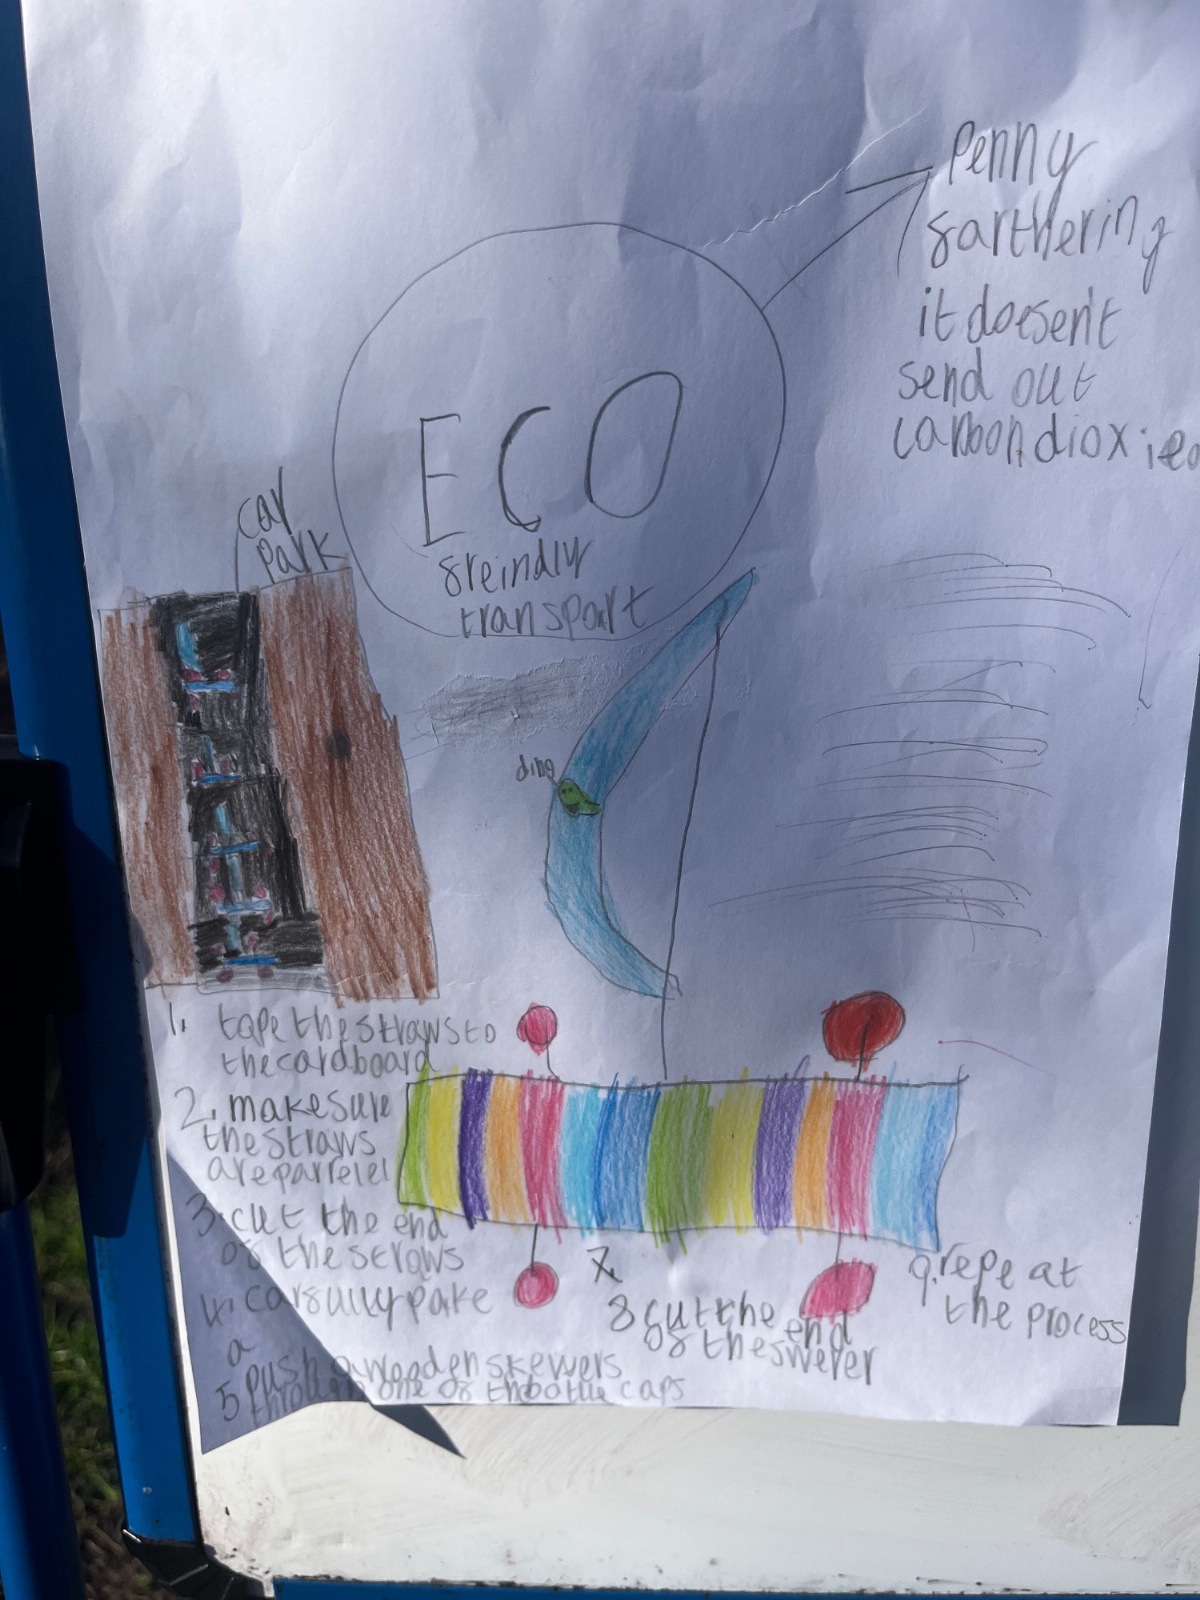 Penny
farthering
it doesen't
send out
carbon dioxied
ECO
freindly
transport
car
park
dino
1. tape the straws to
the cardboard
2. make sure
the straws
are parrelel
3. cut the end
of the straws
4. carfully poke
a
5 push a wooden skewers
through one of the bottle caps
7.
8 cut the end
of the swerer
9. repeat
the process